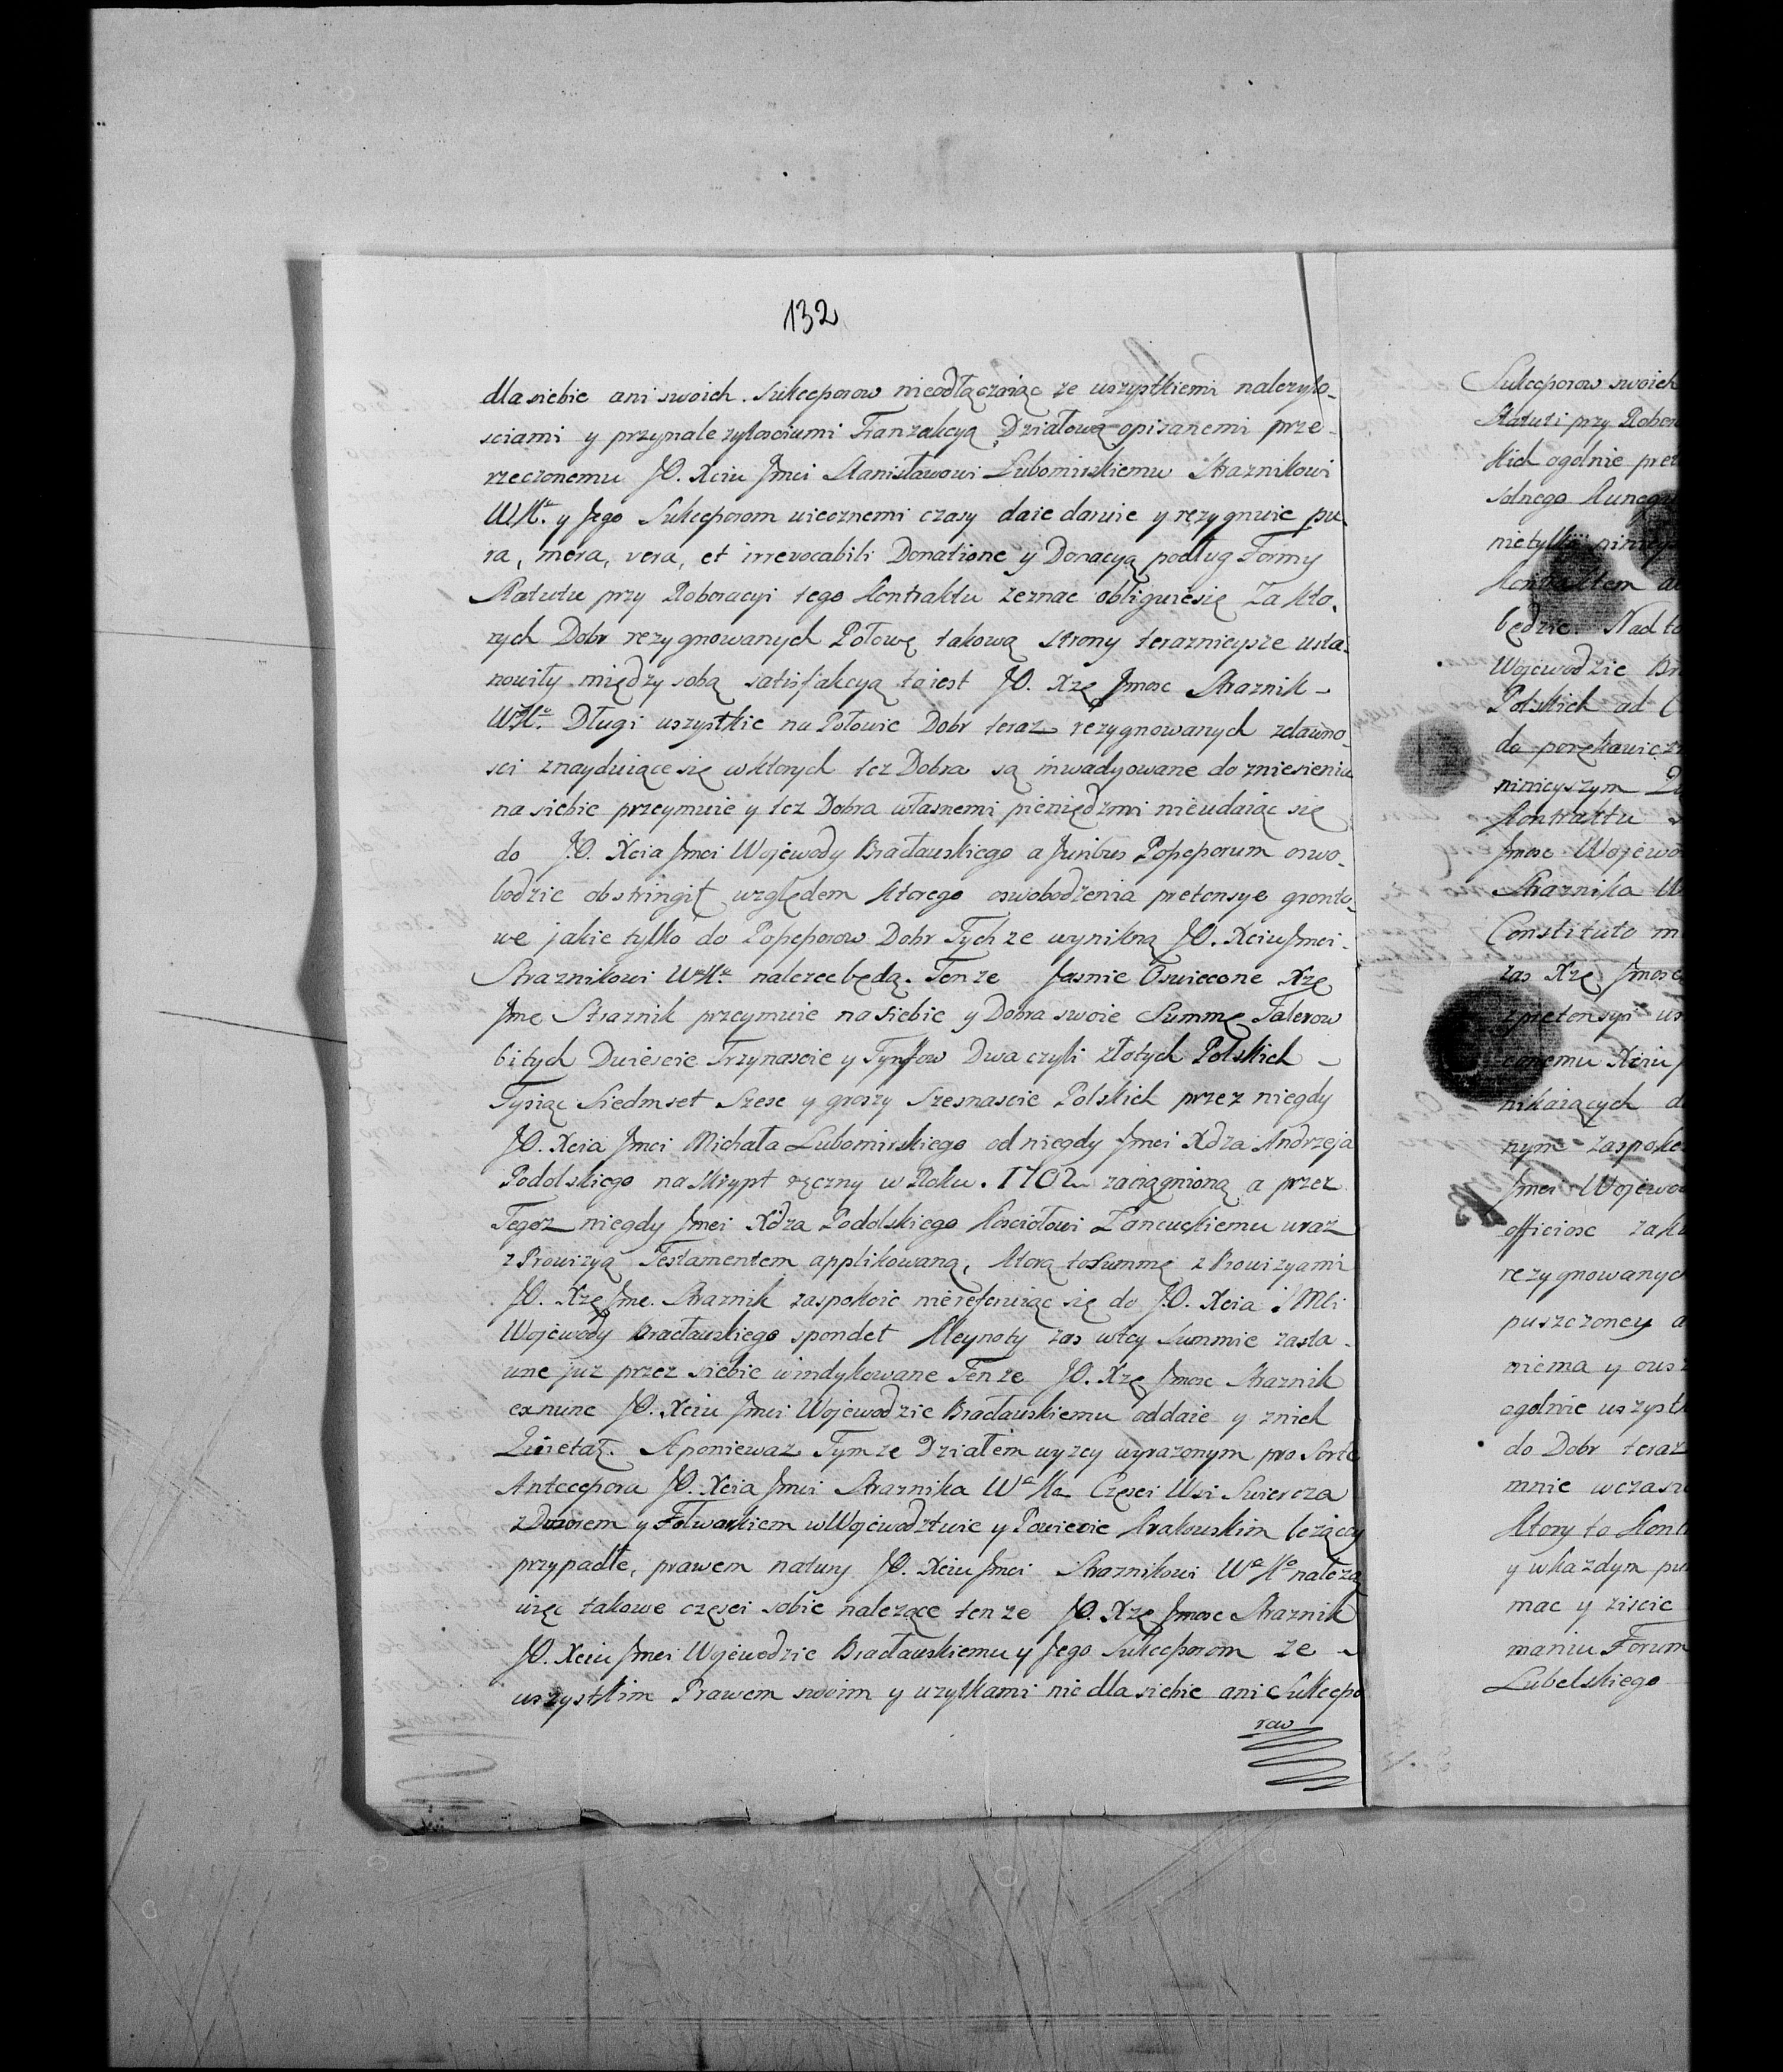 132
dla siebie ani swoich. Sukcessorow nieodłączaiąc ze wszystkiemi nalezyto-
sciami y przynalezytosciami Tranzakcyą Działową opisanemi prze-
rzeczonemu JO. Xciu Jmci Stanisławowi Lubomirskiemu Straznikowi
W.K. y Jego Sukcessorom wiecznemi czasy daie daruie y rezygnuie pu-
ra, mera, vera, et irrevocabili Donatione y Donacyą podług Formy
Statutu przy Roboracyi tego Kontraktu zeznac obliguiesię Za kto-
rych Dobr rezygnowanych Połowę takową strony teraznieysze usta-
nowiły między sobą satisfakcyą toiest JO. Xzę Jmosc Straznik -
W.K. Długi wszystkie na Połowie Dobr teraz rezygnowanych zdawno-
sci znayduiące się w ktorych tez Dobra są inwadyowane do zniesienia
na siebie przeymuie y tez Dobra własnemi pieniędzmi nieudaiąc się
do J.O. Xcia Jmci Wojewody Bracławskiego a Juribus Possessorum oswo-
bodzic obstringit względem ktorego oswobodzenia pretensye gronto-
we jakie tylko do Possessorow Dobr Tychze wynikną JO. Xciu Jmci-
Straznikowi W.K. nalezec będą. Tenze Jasnie Oswiecone Xzę
Jmc Straznik przeymuie na siebie y Dobra swoie Summę Talerow
bitych Dwiescie Trzynascie y Tynfow Dwa czyli złotych Polskich -
Tysiąc Siedmset Szesc y groszy Szesnascie Polskich przez niegdy
JO. Xcia Jmci Michała Lubomirskiego od niegdy Jmci Xdza Andrzeja
Podolskiego na Skrypt ręczny w Roku. 1702 zaciągnioną a przez
Tegoz niegdy Jmci Xdza Podolskiego Kosciołowi Łancuckiemu wraz
z Prowizyą Testamentem applikowaną, ktorą to Summę z Prowizyami
JO. Xzę Jmc. Straznik zaspokoic niereferuiąc się do J.O. Xcia JMci
Wojewody Bracławskiego spondet Kleynoty zas w tey Summie zasta-
wne juz przez siebie windykowane Tenze JO. Xzę Jmosc Straznik
ex nunc JO. Xciu Jmci Wojewodzie Bracławskiemu oddaie y znich
Quietat. Aponiewaz Tymze Działem wyzey wyrazonym pro Sorte
Antecessora JO. Xcia Jmci Straznika W. K. Częsci Wsi Swiercza
z Dworem y Folwarkiem w Wojewodztwie y Powiecie Krakowskim lezącey
przypadłe, prawem natury JO. Xciu Jmci Straznikowi W. K. nalezą
więc takowe częsci sobie nalezące tenze JO. Xzę Jmosc Straznik
JO. Xciu Jmci Wojewodzie Bracławskiemu y Jego Sukcessorom ze -
wszystkim Prawem swoim y uzytkami nie dla siebie ani Sukcesso
row
Sukcessorow swoich
Statuti przy Robor
kich ogolnie pret
solnego
nietylko
Kontraktem
będzie. Nad to
Wojewodzie Br
Polskich ad
do
ninieyszym
Kontraktu
Jmosc Wojewo
Straznika W
Constituto m
zas Xzę Jmosc
zpretensyi
Xciu J
nikaiących d
nym zaspoko
Jmci Wojewo
officiose
rezygnowanych
puszczoney a
niema y
ogolnie wszystk
do Dobr teraz
mnie wczasie
Ktory to Kont
y wkazdym pu
mac y ziscic
maniu Forum
Lubelskiego